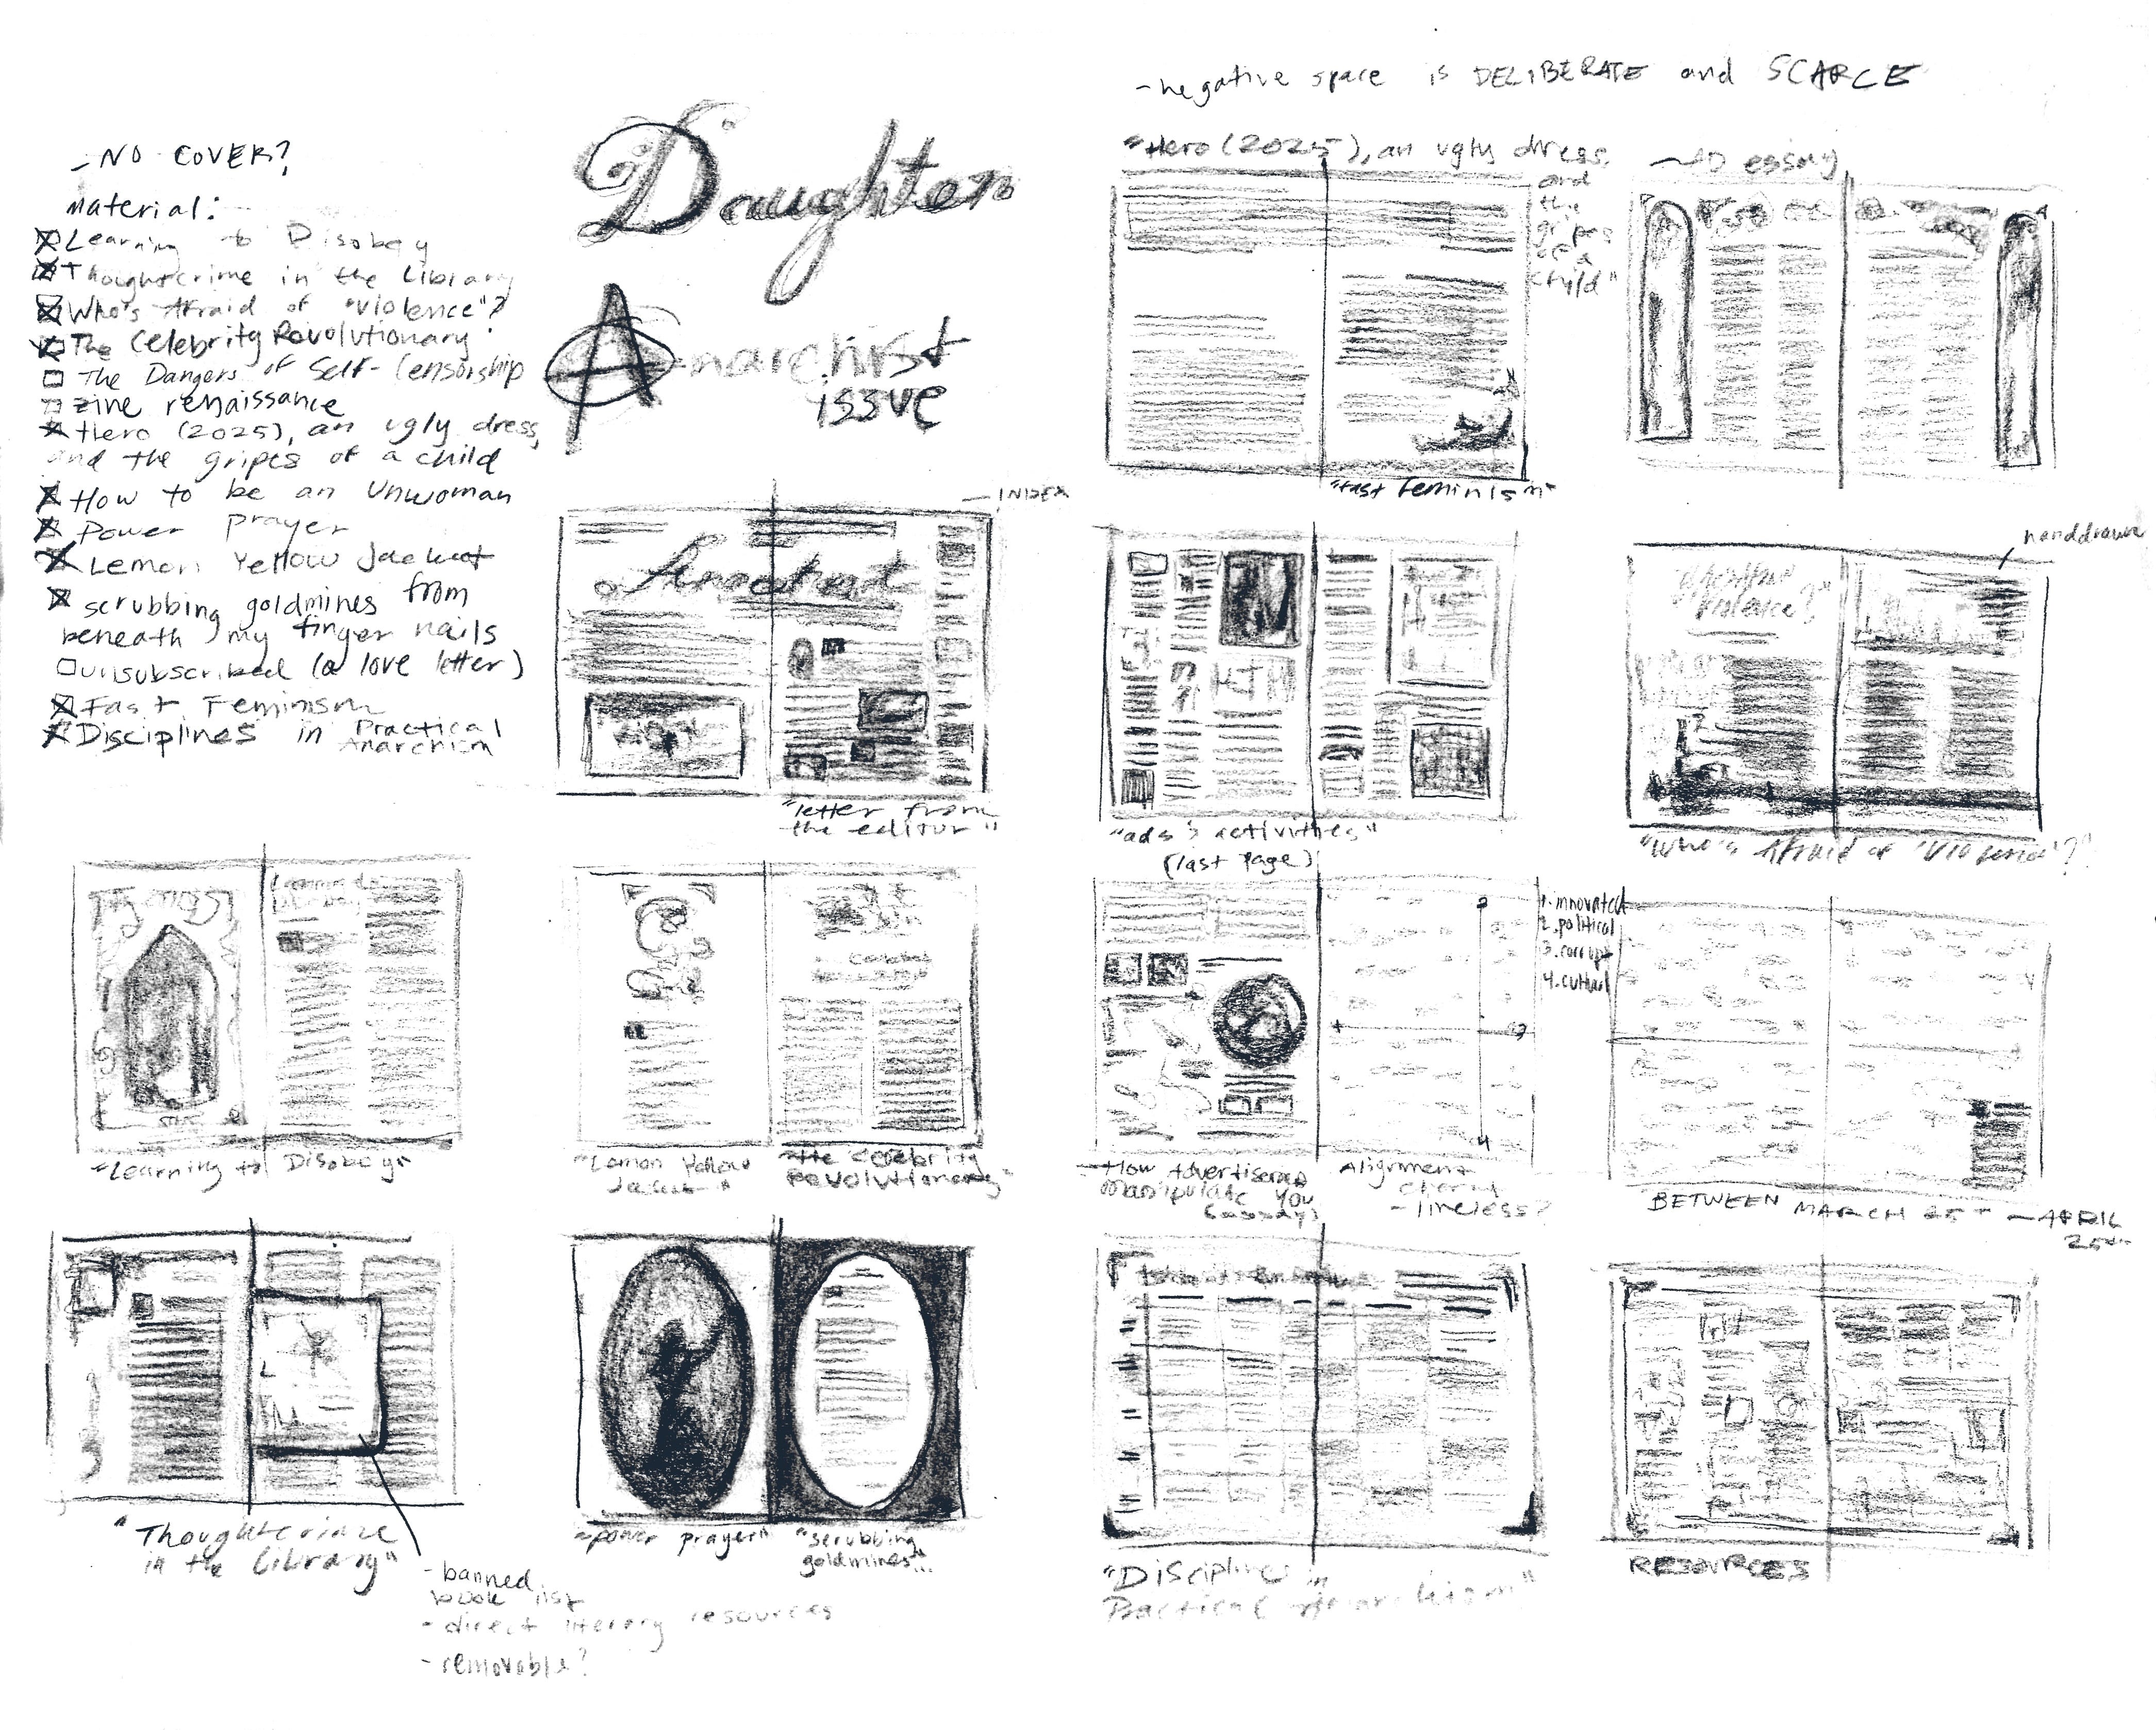 - NO COVER?
Material:
Learning to Disobey
Thoughtcrime in the Library
Who's Afraid of "Violence"?
The Celebrity Revolutionary
The Dangers of Self-Censorship
zine renaissance
Hero (2025), an ugly dress,
and the gripes of a child
How to be an Unwoman
Power Prayer
Lemon Yellow Jacket
scrubbing goldmines from
beneath my finger nails
unsubscribed (a love letter)
Fast Feminism
Disciplines in Practical
Anarchism
Daughters
Anarchist
issue
- negative space is DELIBERATE and SCARCE
"Hero (2025), an ugly dress,
and
the
gripes
of a
child"
"fast feminism"
essay
- INDEX
"letter from
the editor"
"ads & activities"
(last page)
handdrawn
"Who's Afraid of 'Violence'?"
"Learning to Disobey"
"Lemon Yellow
Jacket"
"the celebrity
Revolutionary"
How Advertisers
Manipulate you
Alignment
chart
- lineless?
1.
2. political
3. corrupt
4. cultural
2
4
BETWEEN MARCH 25th - APRIL
25th
"Thoughtcrime
in the Library"
- banned
book list
- direct literary resources
- removable?
"power prayer"
"scrubbing
goldmines"...
"Disciplines in
Practical Anarchism"
RESOURCES